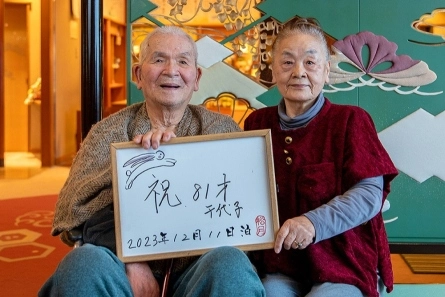 祝 81才
千代子
2023年12月11日泊